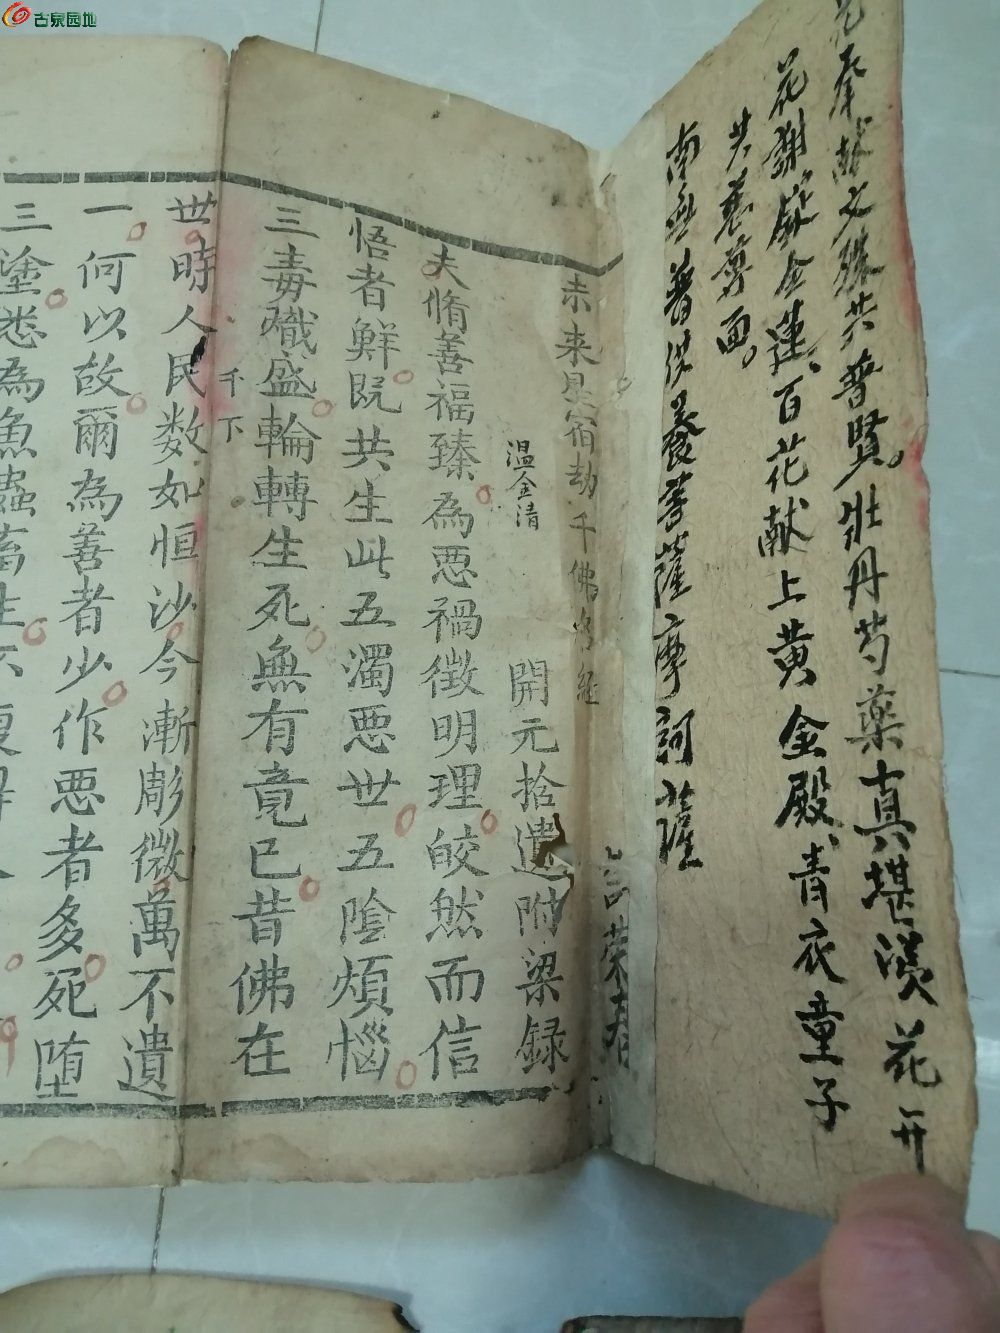 古泉园地
花奉献文殊共普賢。牡丹芍藥真堪羡花開
花謝求金蓮、百花献上黄金殿、青衣童子
共養尊面。
南無普供養菩薩摩訶薩
未来星宿劫千佛名經
温金清
開元拾遺附梁録
夫脩善福臻。為惡禍徵明理。皎然而信
悟者鮮。既共生此五濁惡世。五陰煩惱。
三毒熾盛。輪轉生死。無有竟已。昔佛在
千下
世時人民數如恒沙今漸彫微萬不遺
一。何以故。爾為善者少。作惡者多。死墮
三塗。悉為魚蟲畜生。不復得人